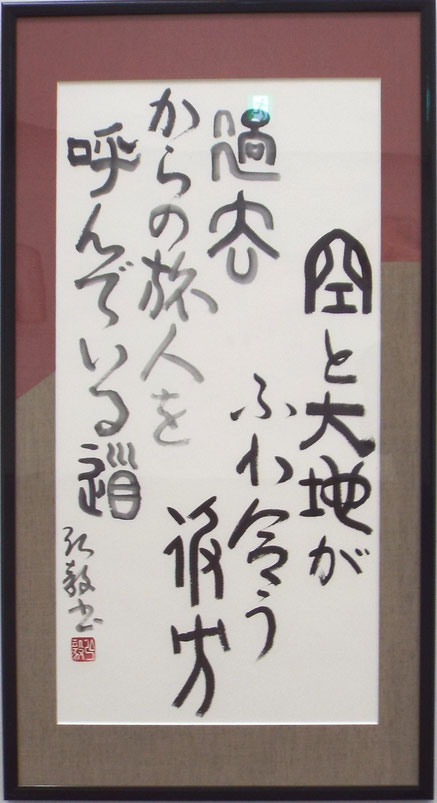 空と大地が
ふれ合う
彼方
過去
からの旅人を
呼んでいる道